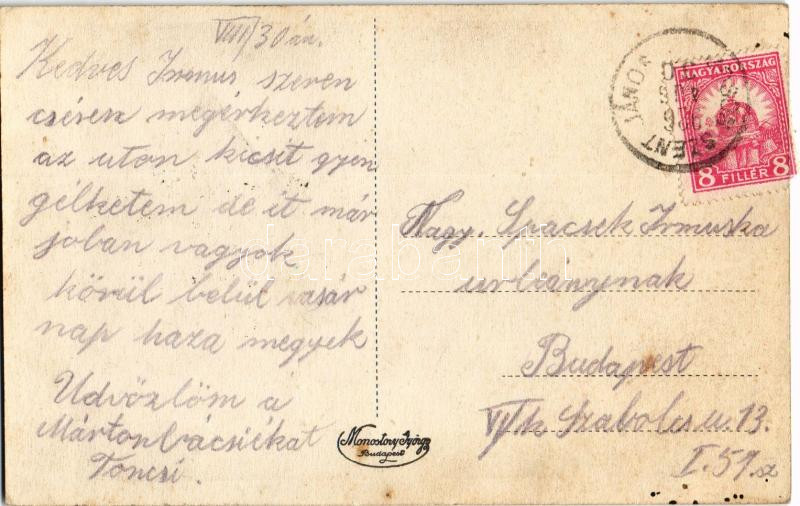 VIII/30án.
Kedves Irmus szeren
csésen megérkeztem
az uton kicsit gyen
gélketem de it már
joban vagyok
körül belül vasár
nap haza megyek
Udvözlöm a
Mártonbácsiékat
Toncsi.
SZENT JÁNOS
MAGYARORSZÁG
8 FILLÉR 8
Nagy. Spacsek Irmuska
urleánynak
Budapest
VI/k Szabolcs u. 13.
I. 51. sz
Monostory György
Budapest
darabanth